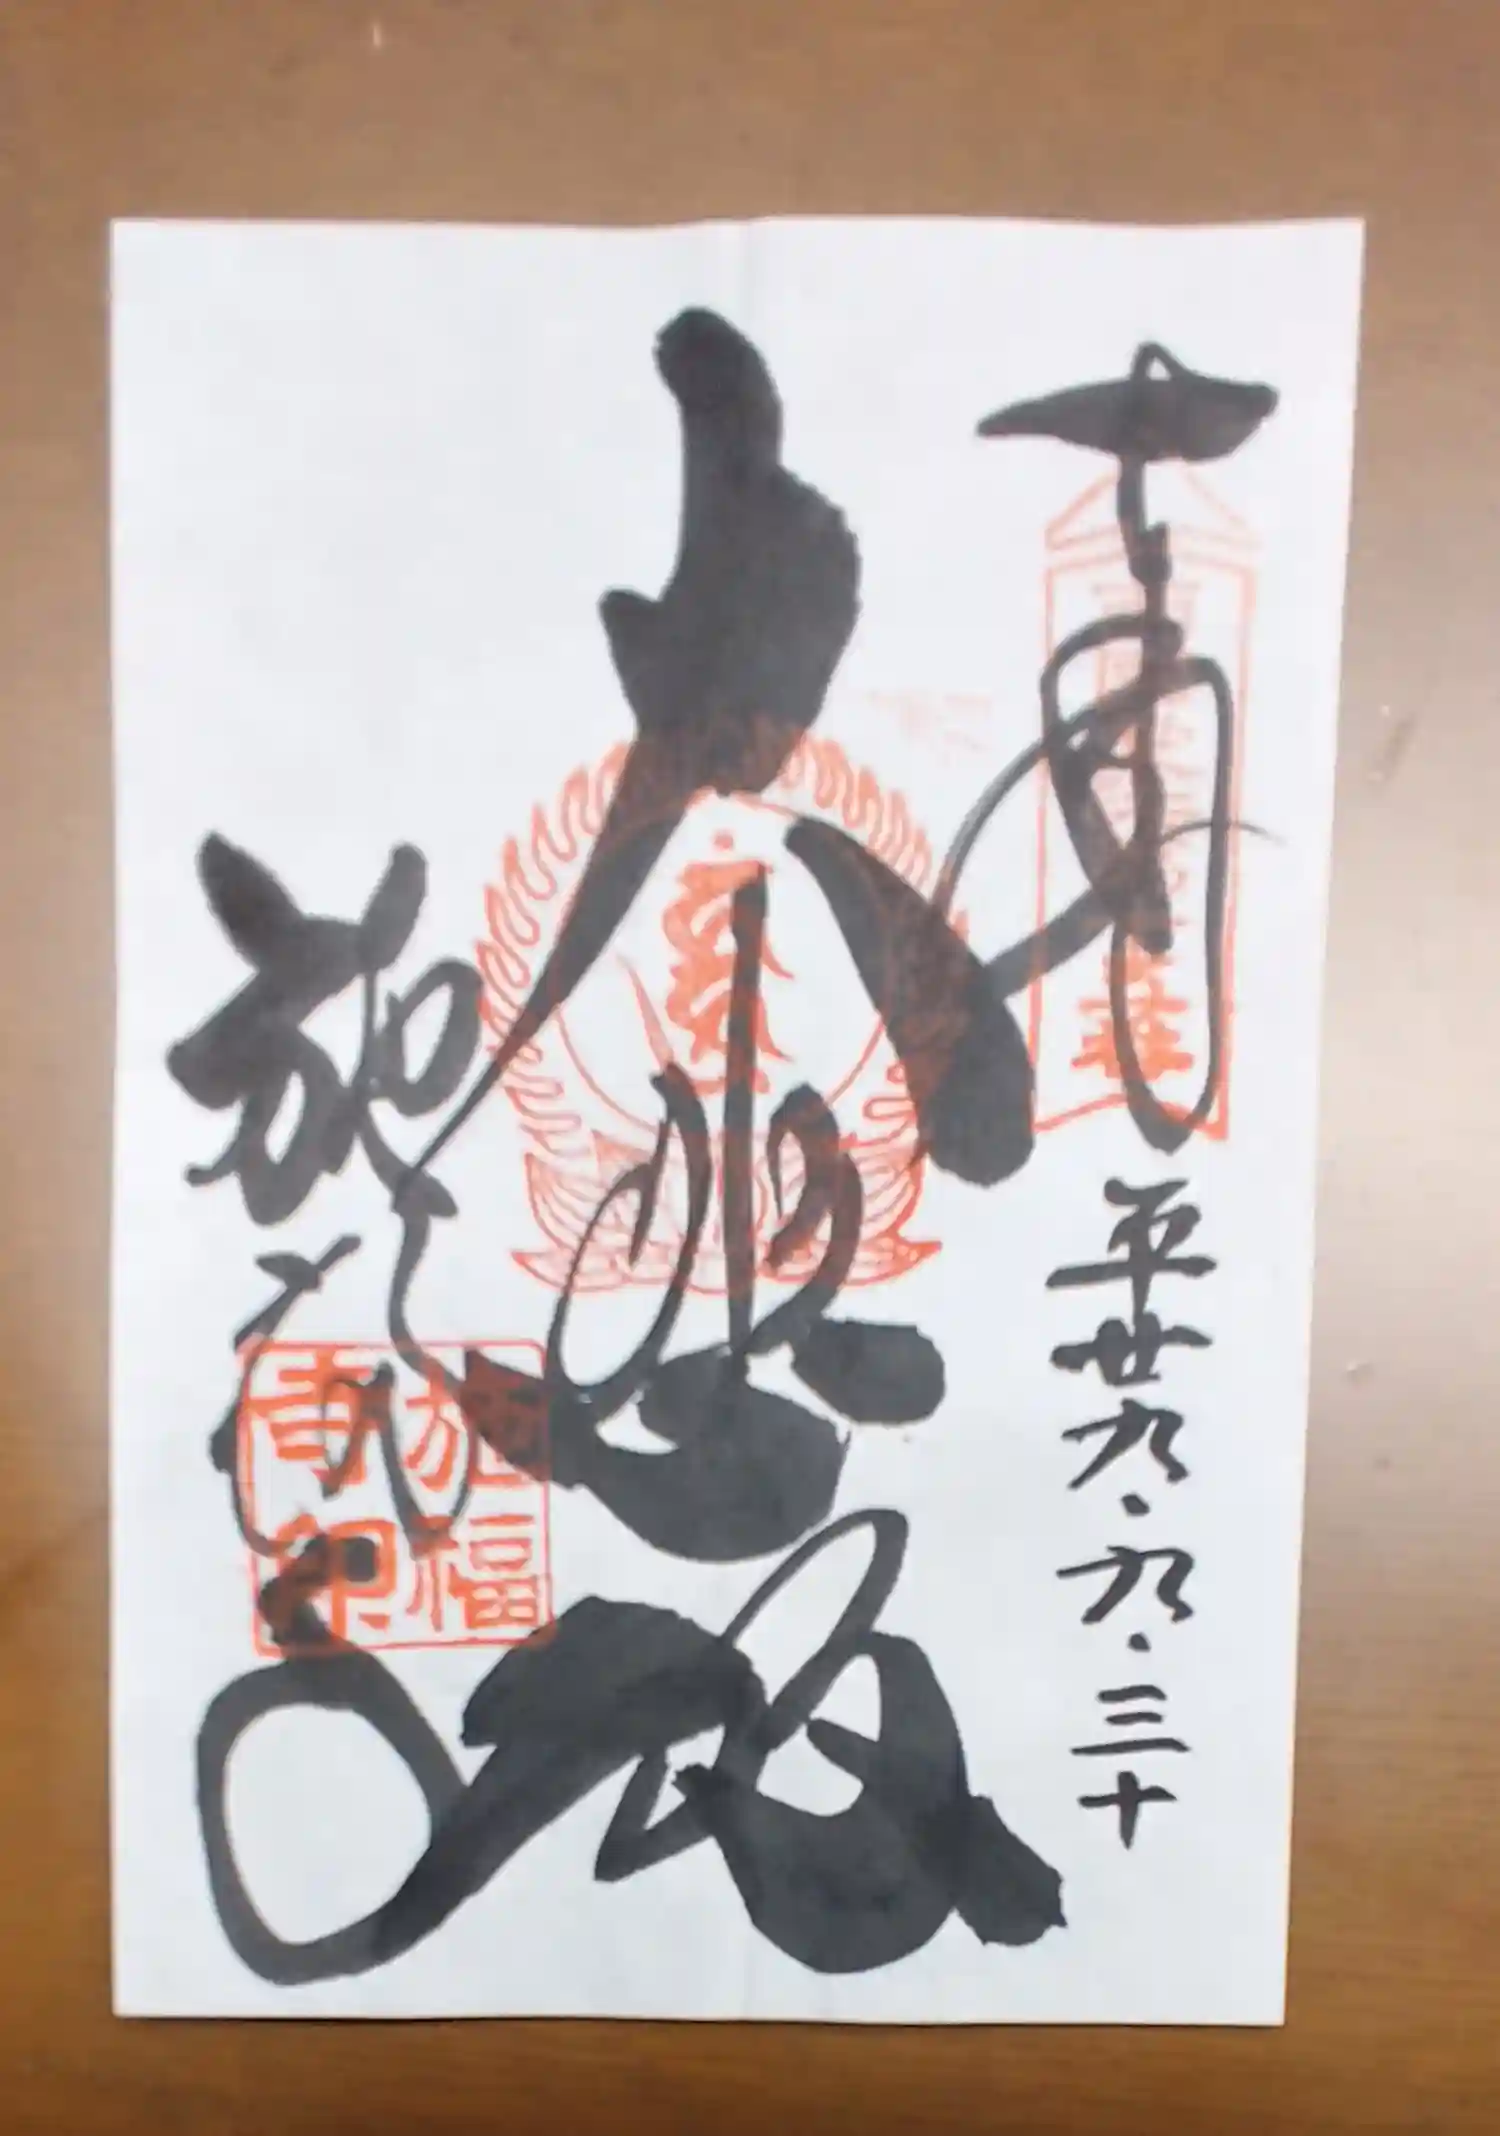 奉
平廿九.九.三十
大悲殿
施福寺
施福
寺印